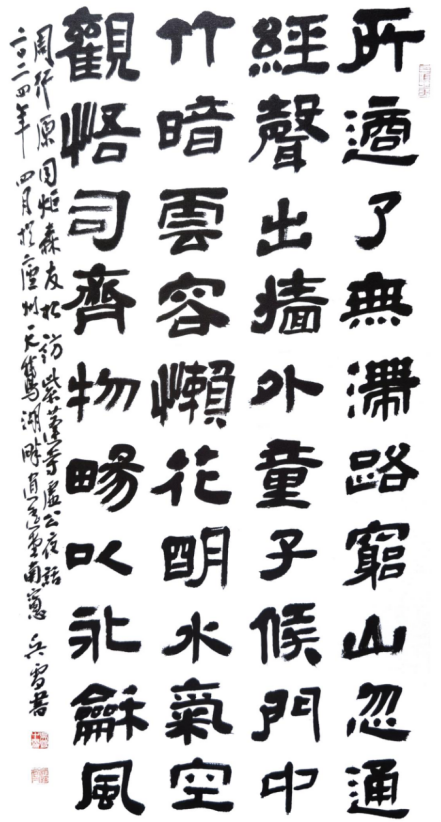 所適了無滯路窮山忽通
經聲出牆外童子候門中
竹暗雲容懶花明水氣空
觀悟司齊物暢以永龢風
周行原同炬森友松訪紫蓬寺虛公夜話
二〇二四年四月於廬州天鵝湖畔直堂南窗 書